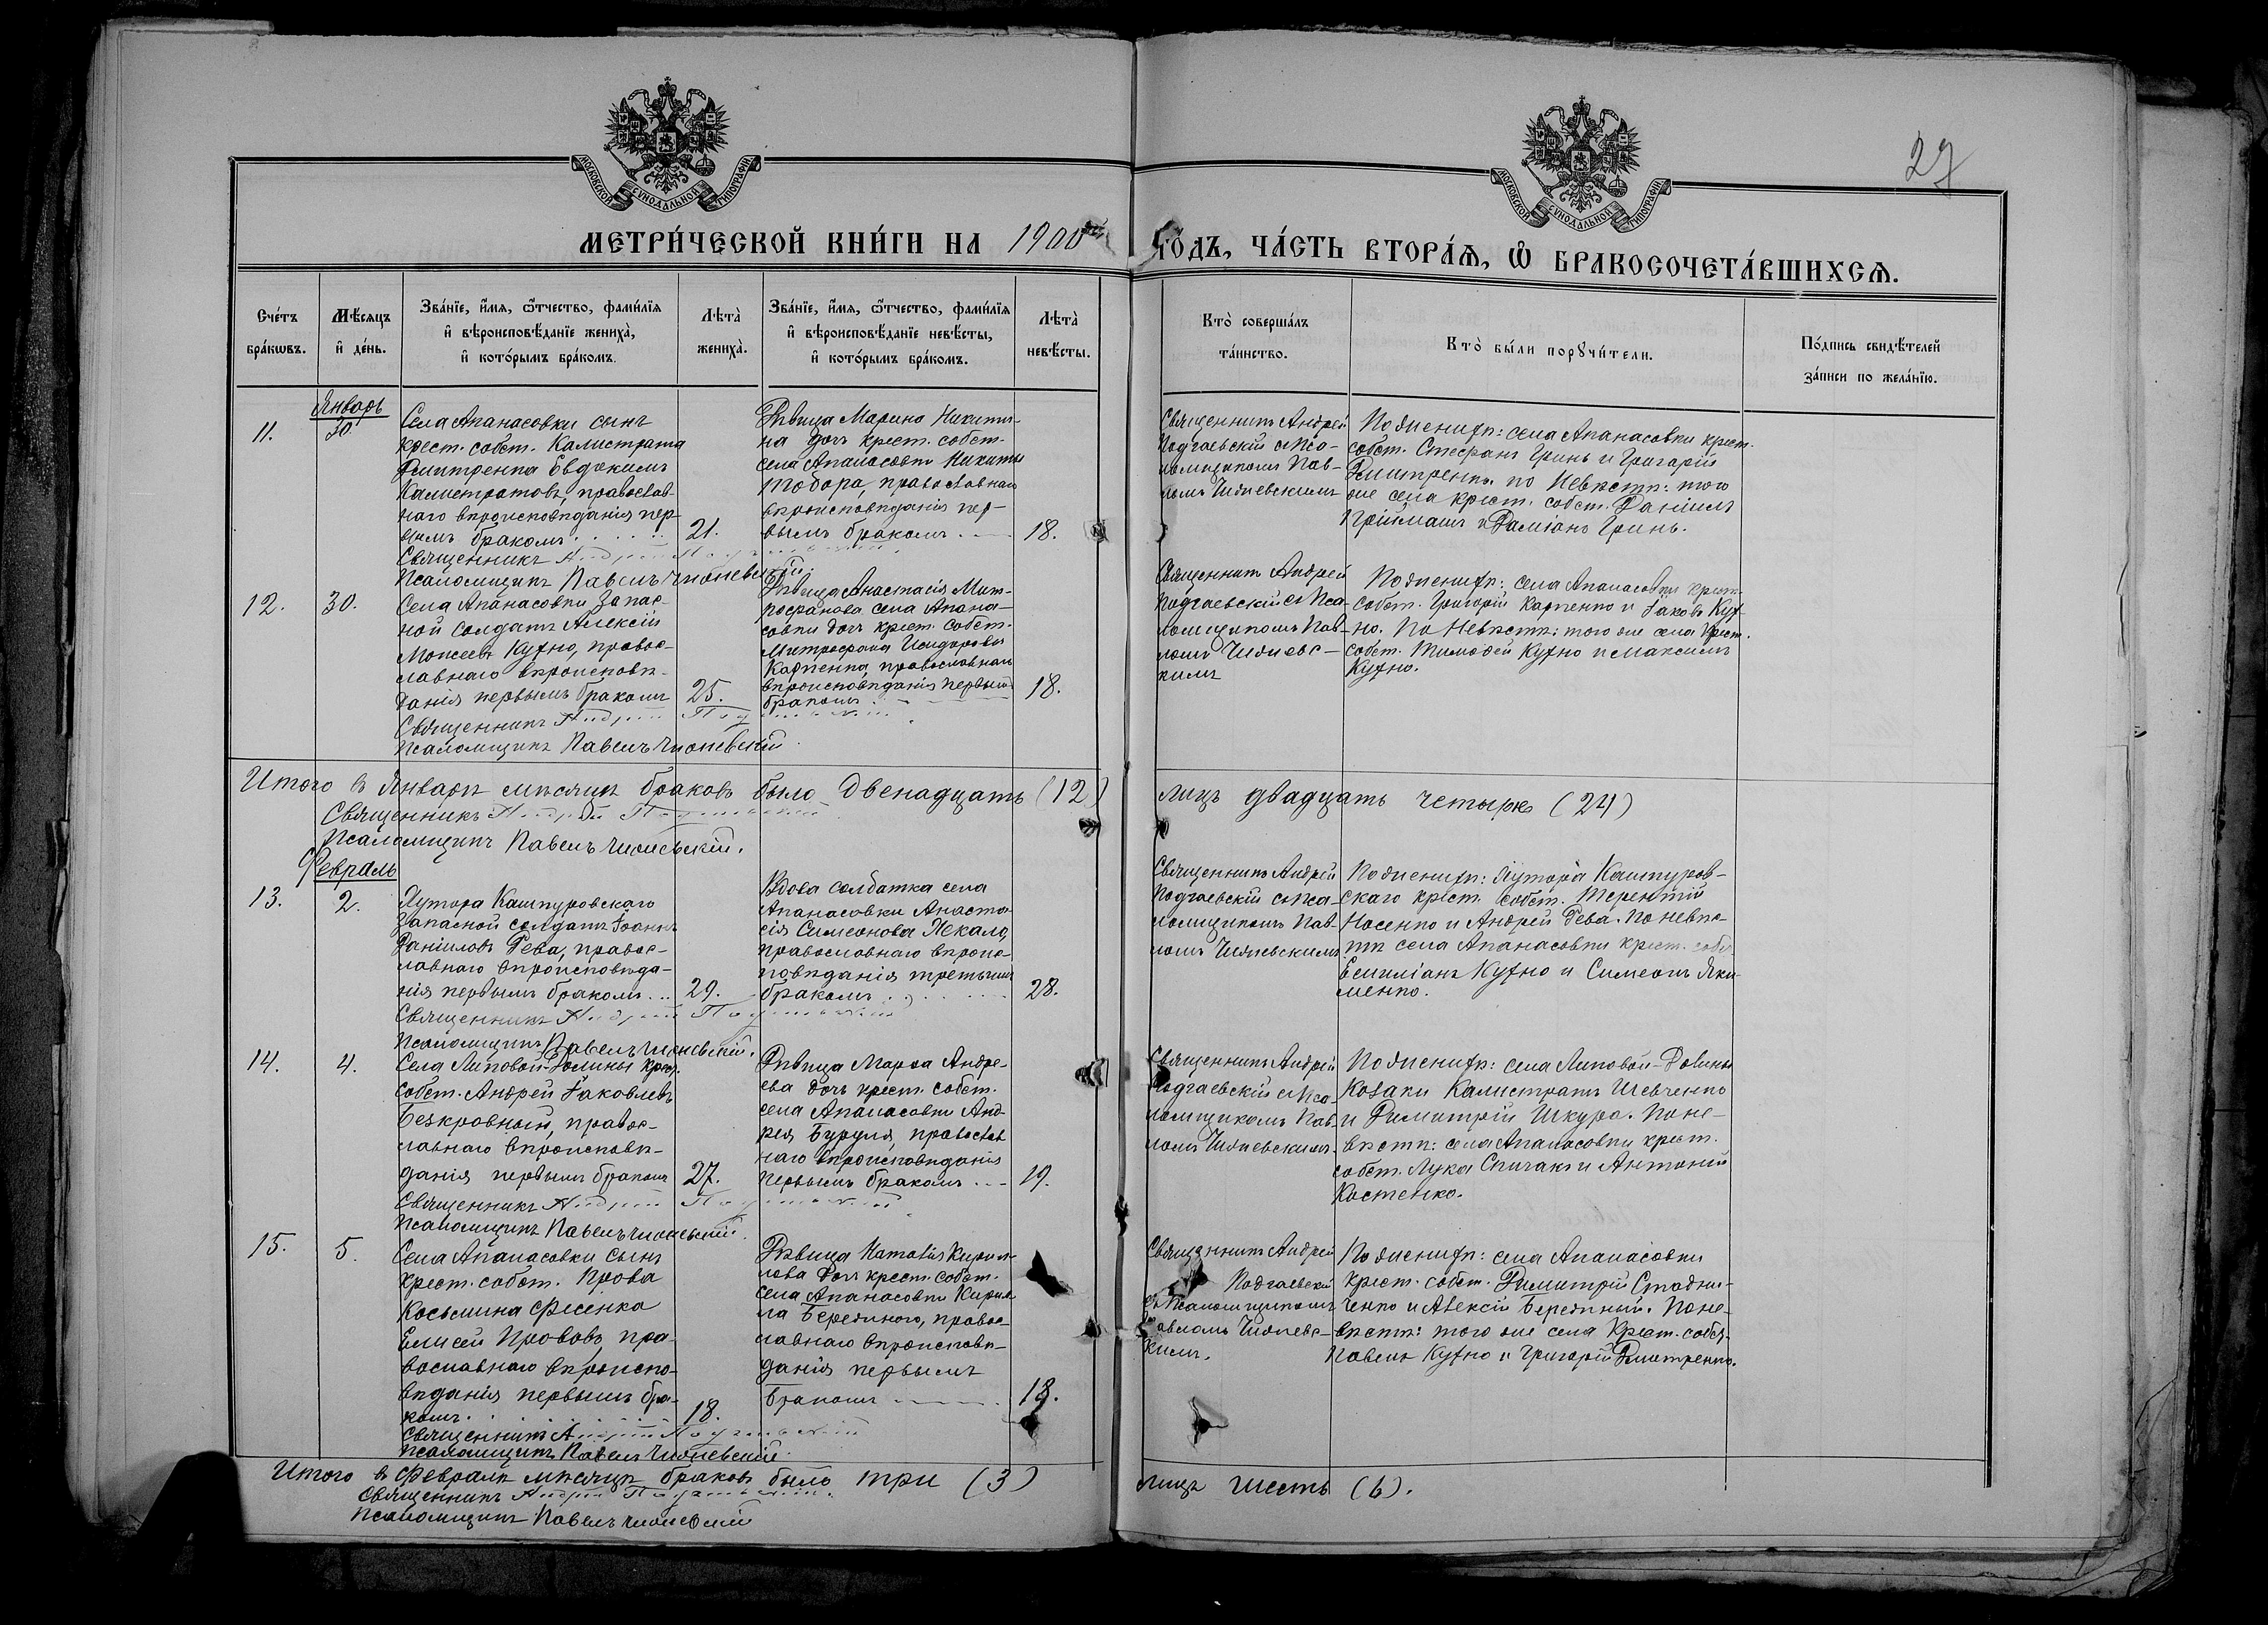 27
МОСКОВСКОЙ СѴНОДАЛЬНОЙ ТИПОГРАФІИ
МОСКОВСКОЙ СѴНОДАЛЬНОЙ ТИПОГРАФІИ
МЕТРИ́ЧЕСКОЙ КНИ́ГИ НА 1900ый ГО́ДЪ, ЧА́СТЬ ВТОРА́Ѧ, Ѽ БРАКОСОЧЕТА́ВШИХСѦ.
Сче́тъ бра́кωвъ.
Мѣ́сѧцъ и҆ де́нь.
Зва́нїе, и҆́мѧ, ѻ҆́тчество, фами́лїѧ и҆ вѣроисповѣ́данїе жениха̀, и҆ кото́рымъ бра́комъ.
Лѣта̀ жениха̀.
Зва́нїе, и҆́мѧ, ѻ҆́тчество, фами́лїѧ и҆ вѣроисповѣ́данїе невѣ́сты, и҆ кото́рымъ бра́комъ.
Лѣта̀ невѣ́сты.
Кто̀ соверша́лъ та́инство.
Кто̀ бы́ли порꙋчи́тели.
По́дпись свидѣ́телей за́писи по жела́нїю.
Январь
11.
30.
Села Апанасовки сынъ
крест. собст. Калистрата
Дмитренка Евдокимъ
Калистратовъ, православ-
наго вѣроисповѣданія пер-
вымъ бракомъ
21.
Священникъ Андрей
Псаломщикъ Павелъ
Дѣвица Марина Никити-
на дочь крест. собст.
села Апанасовки Никиты
Тобора, православнаго
вѣроисповѣданія пер-
вымъ бракомъ
18.
Священникъ Андрей
Подгаевскій съ Пса-
ломщикомъ Пав-
ломъ
По женихѣ: села Апанасовки крест.
собст. Стефанъ Гринь и Григорій
Дмитренко. по Невѣстѣ: того
же села крест. собст. Даніилъ
и Даміанъ Гринь.
12.
30.
Села Апанасовки Запас-
ной солдатъ Алексій
Моисеевъ Кухно, правос-
лавнаго вѣроисповѣ-
данія первымъ бракомъ
25.
Священникъ Андрей
Псаломщикъ Павелъ
Дѣвица Анастасія Мит-
рофанова села Апана-
совки дочь крест. собст.
Митрофана Исидорова
Карпенка, православнаго
вѣроисповѣданія первымъ
бракомъ
18.
Священникъ Андрей
Подгаевскій съ Пса-
ломщикомъ Пав-
ломъ
По женихѣ: села Апанасовки крест.
собст. Григорій Карпенко и Іаковъ Кух-
но. По Невѣстѣ: того же села крест.
собст. Тимофей Кухно и Максимъ
Кухно.
Итого въ Январѣ мѣсяцѣ браковъ было двенадцать (12) лицъ двадцать четыре (24)
Священникъ Андрей
Псаломщикъ Павелъ
Февраль
13.
2.
Хутора Кашпуровскаго
Запасной солдатъ Іоаннъ
Даніиловъ Рева, правос-
лавнаго вѣроисповѣда-
нія первымъ бракомъ
29.
Священникъ Андрей
Псаломщикъ Павелъ
Вдова солдатка села
Апанасовки Анаста-
сія Симеонова Жекало,
православнаго вѣроис-
повѣданія третьимъ
бракомъ
28.
Священникъ Андрей
Подгаевскій съ Пса-
ломщикомъ Пав-
ломъ
По женихѣ: Хутора Кашпуров-
скаго крест. собст. Терентій
Носенко и Андрей Рева. По невѣс-
тѣ села Апанасовки крест. собст.
Емиліанъ Кухно и Симеонъ Яки-
менко.
14.
4.
Села Липовой-Долины крес.
собст. Андрей Іаковлевъ
Безкровный, правос-
лавнаго вѣроисповѣ-
данія первымъ бракомъ
27.
Священникъ Андрей
Псаломщикъ Павелъ
Дѣвица Марѳа Андре-
ева дочь крест. собст.
села Апанасовки Анд-
рея Буруля, православ
наго вѣроисповѣданія
первымъ бракомъ
19.
Священникъ Андрей
Подгаевскій съ Пса-
ломщикомъ Пав-
ломъ
По женихѣ: села Липовой-Долины
Козаки Калистратъ Шевченко
и Димитрій Шкура. По не-
вѣстѣ: села Апанасовки крест.
собст. Лука Спичакъ и Антоній
Костенко.
15.
5.
Села Апанасовки сынъ
крест. собст. Прова
Косьмина Фесенка
Елисей Прововъ, пра-
вославнаго вѣроиспо-
вѣданія первымъ бра-
комъ
18.
Священникъ Андрей
Псаломщикъ Павелъ
Дѣвица Наталія Кирил-
лова дочь крест. собст.
села Апанасовки Кирил-
ла Бережного, правос-
лавнаго вѣроисповѣ-
данія первымъ
бракомъ
18.
Священникъ Андрей
Подгаевскій
съ Псаломщикомъ
Павломъ
По женихѣ: села Апанасовки
крест. собст. Димитрій Стадни-
ченко и Алексій Бережный. По не-
вѣстѣ: того же села крест. собст.
Павелъ Кухно и Григорій Дмитренко.
Итого въ Февралѣ мѣсяцѣ браковъ было три (3) лицъ шесть (6).
Священникъ Андрей
Псаломщикъ Павелъ